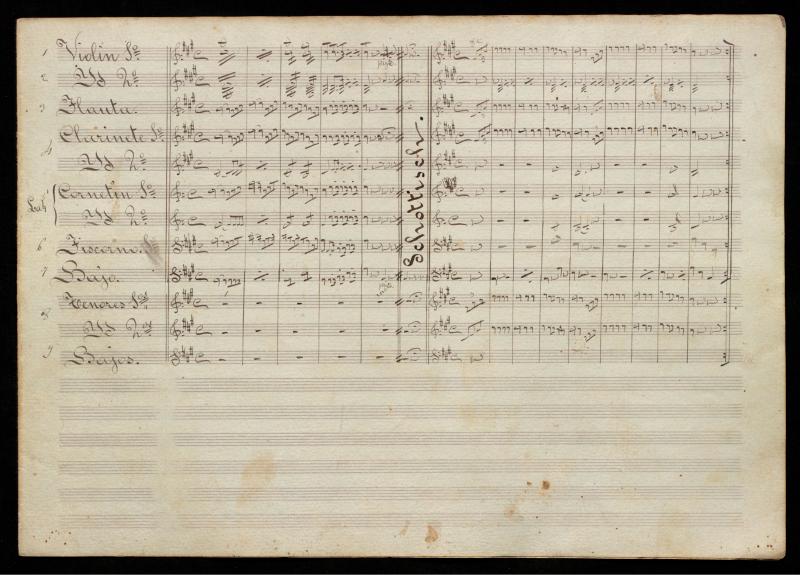 1 Violin 1º
2 Yd 2º
3 Flauta.
Clarinete 1º
4
Yd 2º
Cornetin 1º
Yd 2º
6 Fiscorno.
7 Bajo.
Tenores 1os
8
Yd 2os
9 Bajos.
Schottisch.